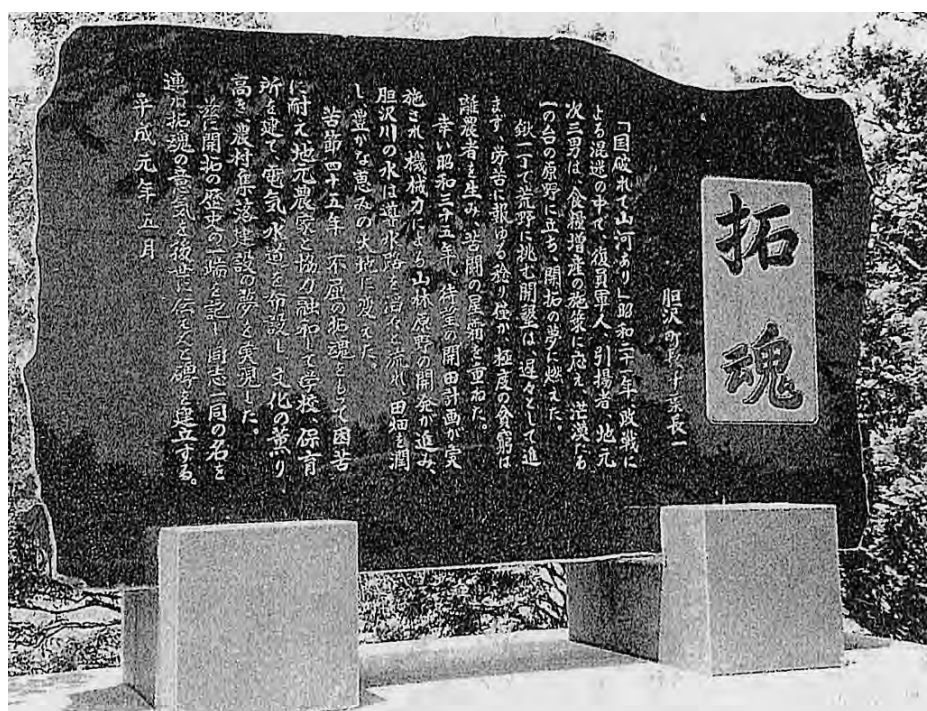 拓魂
胆沢町長 千葉長一
「国破れて山河あり」昭和二十一年、敗戦に
よる混迷の中で、復員軍人、引揚者、地元
次三男は、食糧増産の施策に応え、茫漠たる
一の台の原野に立ち、開拓の夢に燃えた。
鍬一丁で荒野に挑む開墾は、遅々として進
まず、労苦に報ゆる稔り僅か、極度の貧窮は
離農者を生み、苦闘の星霜を重ねた。
幸い昭和三十五年、待望の開田計画が実
施され、機械力による山林原野の開発が進み、
胆沢川の水は導水路を滔々と流れ、田畑を潤
し、豊かな恵みの大地に変えた。
苦節四十五年、不屈の拓魂をもって困苦
に耐え、地元農家と協力融和して学校、保育
所を建て、電気、水道を布設し、文化の薫り
高き、農村集落建設の夢を実現した。
茲に開拓の歴史の一端を記し、同志一同の名を
連ね拓魂の意気を後世に伝えんと碑を建立する。
平成元年五月